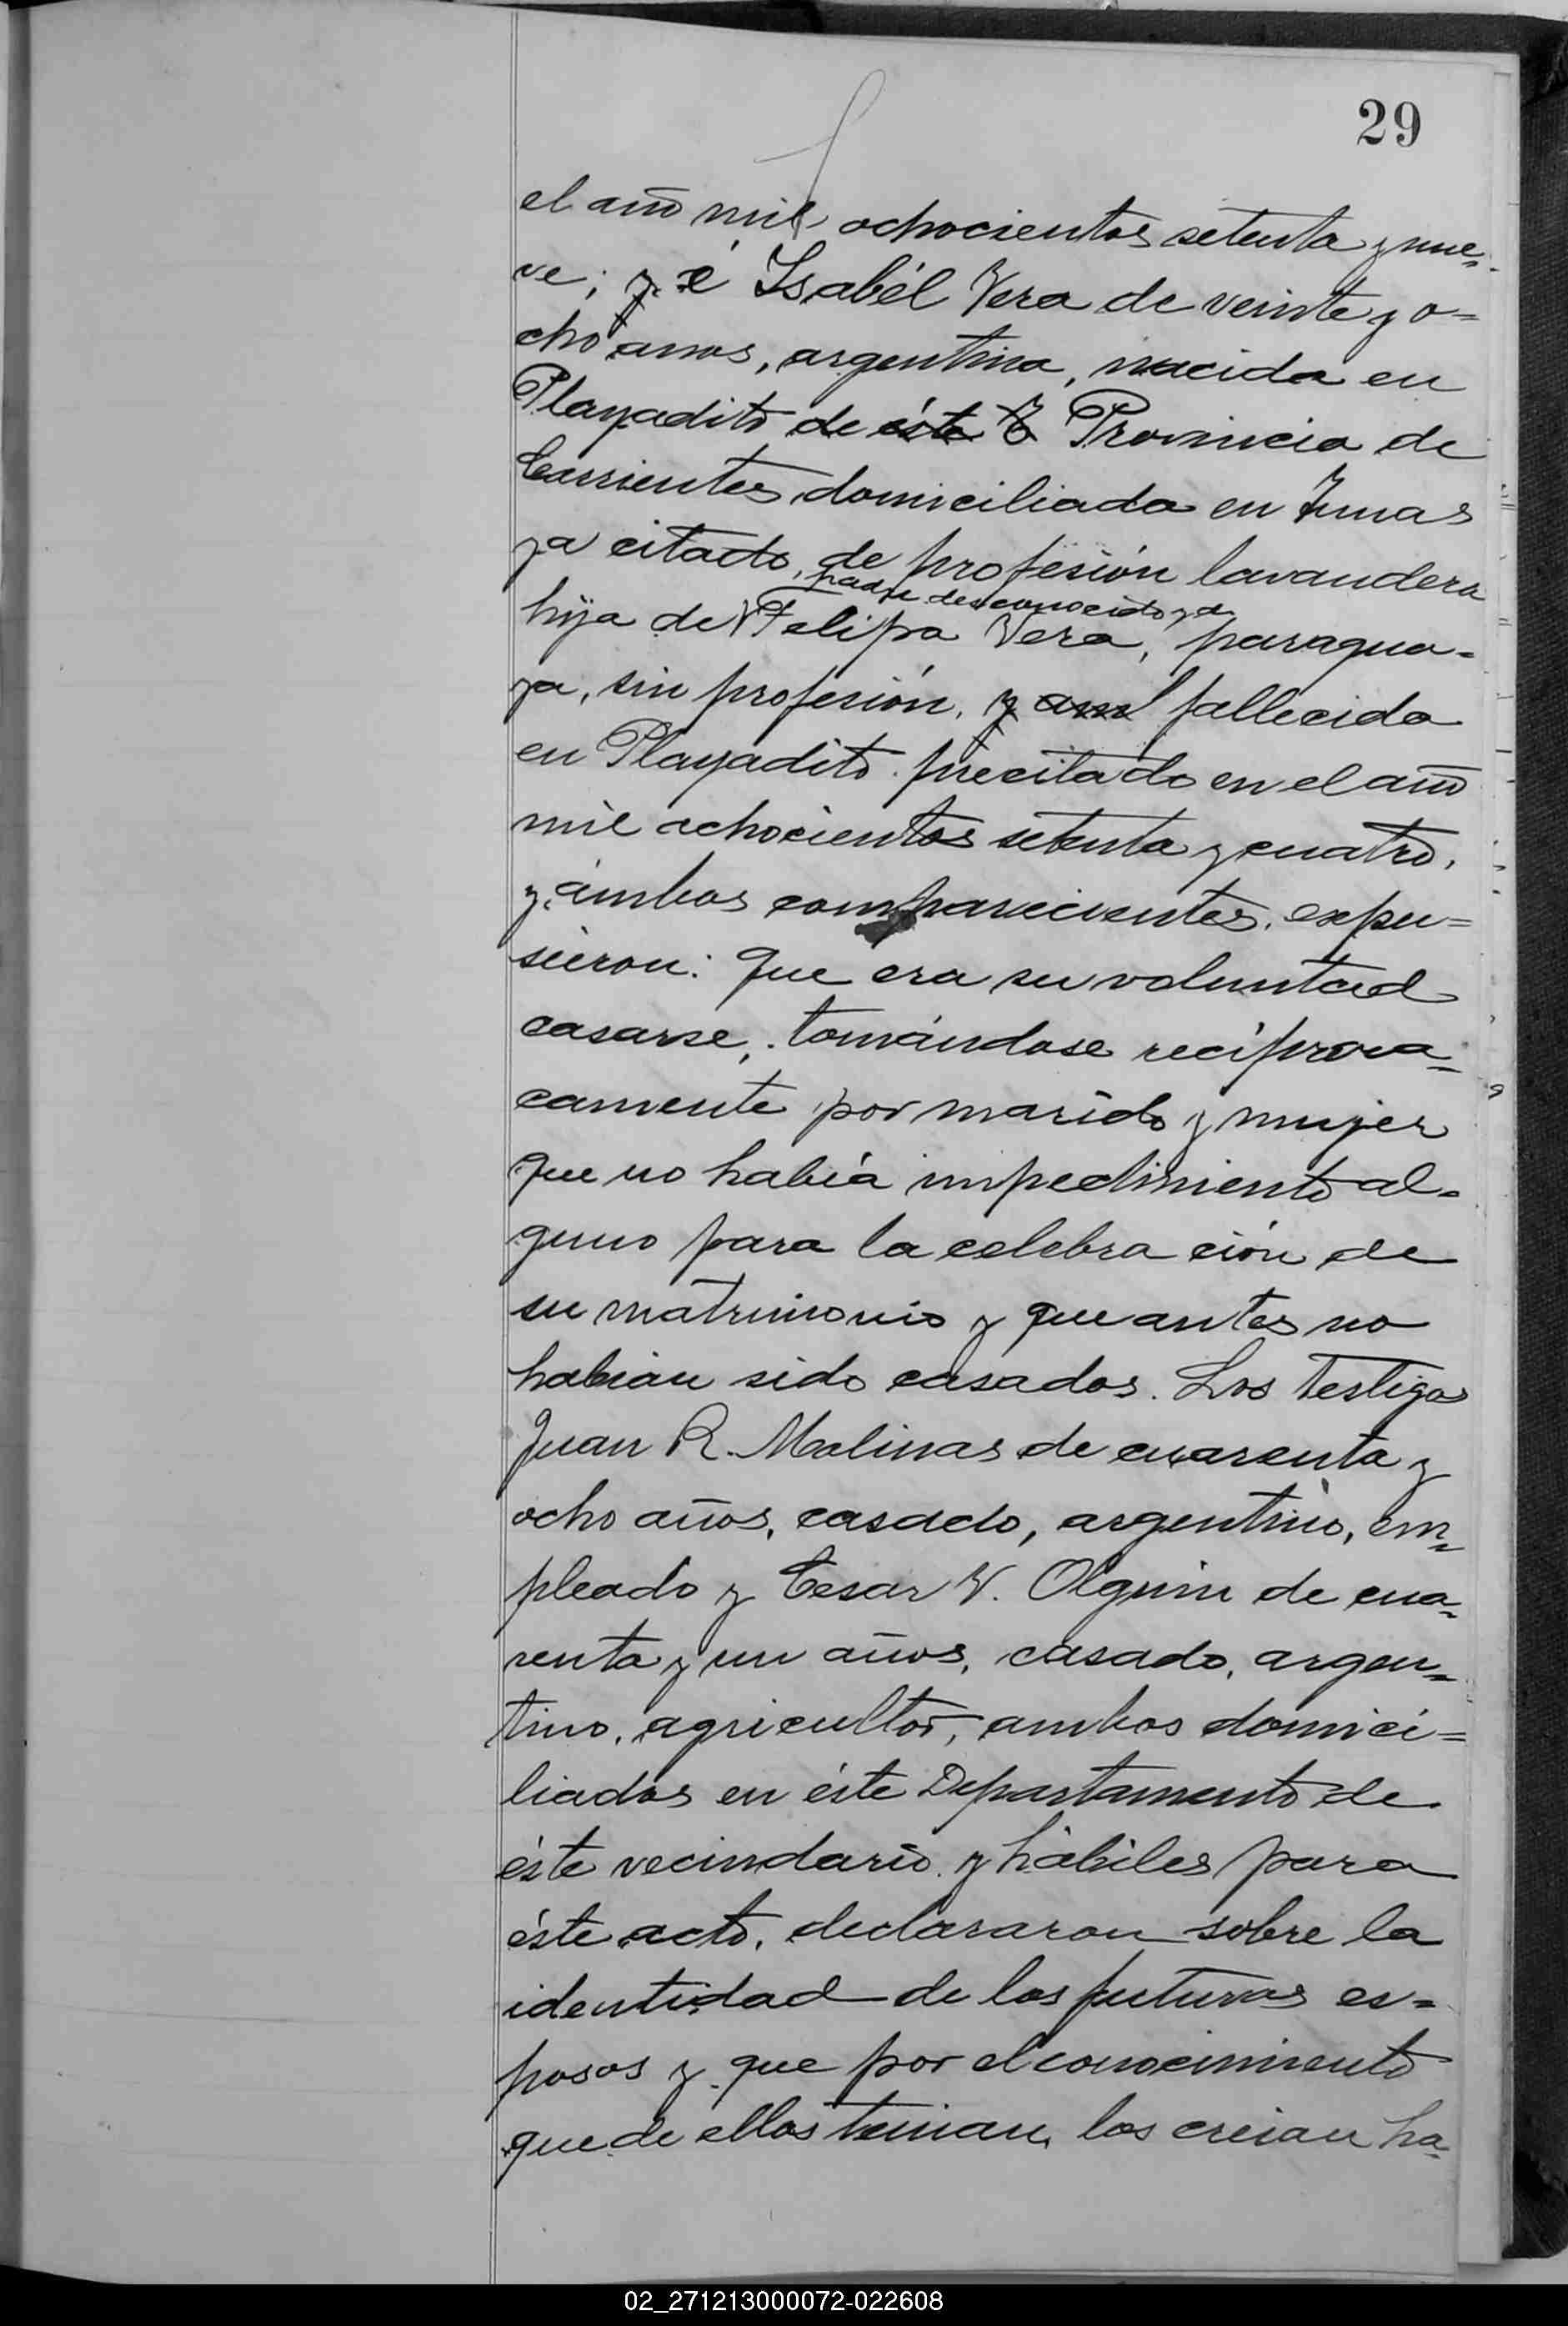 29
el año mil ochocientos setenta y nue=
ve; y é Isabél Vera de veinte y o=
cho anos, argentina, nacida en
Playadito de ésta Provincia de
Corrientes domiciliada en
ya citado, de profesión lavandera
padre desconocido y de
hija de Felipa Vera, paragua=
ya, sin profesión, y fallecida
en Playadito precitado en el año
mil ochocientos setenta y cuatro,
y ámbos comparecientes, expu=
sieron: que era su voluntad
casarse, tomándose recíproca=
camente por marido y mujer
que no había impedimento al=
guno para la celebra ción de
su matrimonio y que antes no
habian sido casados. Los testigos
Juan R. Molinas de cuarenta y
ocho años, casado, argentino, em=
pleado y Cesar V. Olguin de cua=
renta y un años, casado, argen=
tino, agricultor, ambos domici=
liados en éste Departamento de
éste vecindario y hábiles para
éste acto, declararon sobre la
identidad de los futuros es=
posos y que por el conocimiento
que de ellos tenian, los creian há=
02_271213000072-022608